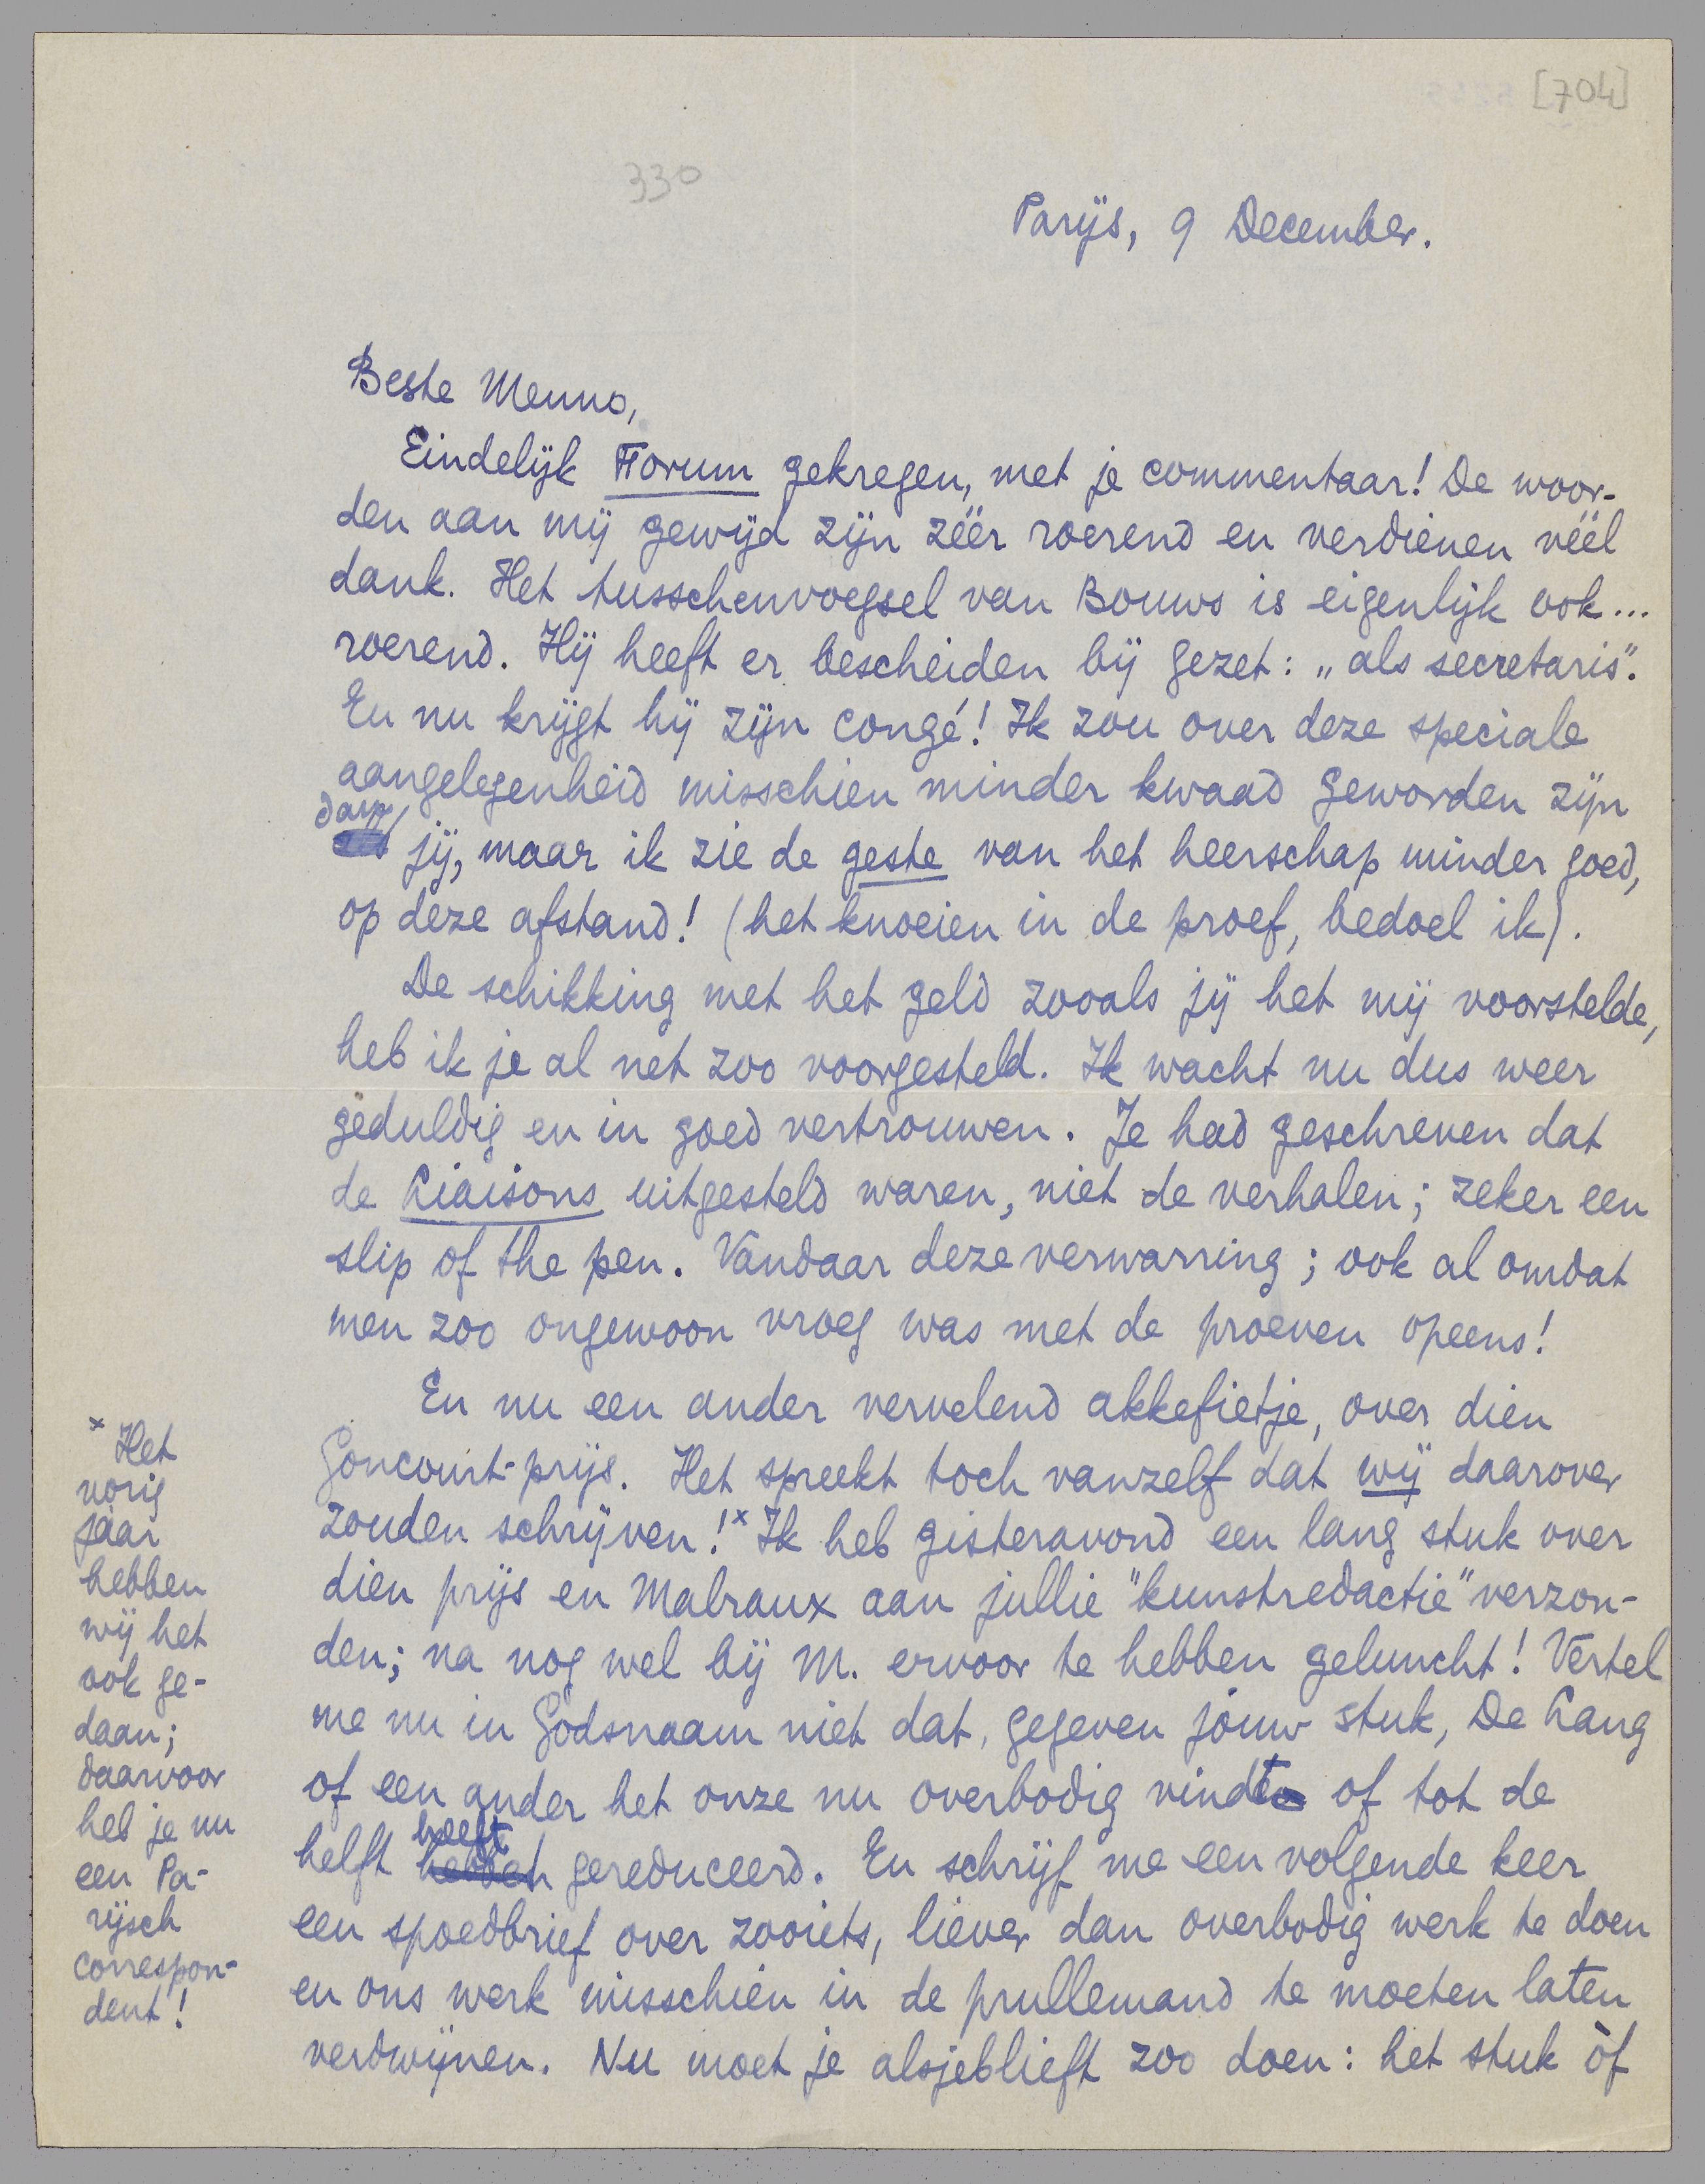 [704]
330
Parijs, 9 December.
Beste Menno,
Eindelijk Forum gekregen, met je commentaar! De woor-
den aan mij gewijd zijn zéér roerend en verdienen véél
dank. Het tusschenvoegsel van Bouws is eigenlijk ook...
roerend. Hij heeft er bescheiden bij gezet: „als secretaris".
En nu krijgt hij zijn congé! Ik zou over deze speciale
aangelegenheid misschien minder kwaad geworden zijn
dan jij, maar ik zie de geste van het heerschap minder goed,
op deze afstand! (het knoeien in de proef, bedoel ik).
De schikking met het geld zooals jij het mij voorstelde,
heb ik je al net zoo voorgesteld. Ik wacht nu dus weer
geduldig en in goed vertrouwen. Je had geschreven dat
de Liaisons uitgesteld waren, niet de verhalen; zeker een
slip of the pen. Vandaar deze verwarring; ook al omdat
men zoo ongewoon vroeg was met de proeven opeens!
En nu een ander vervelend akkefietje, over dien
Goncourt-prijs. Het spreekt toch vanzelf dat wij daarover
zouden schrijven!x Ik heb gisteravond een lang stuk over
dien prijs en Malraux aan jullie "kunstredactie" verzon-
den; na nog wel bij M. ervoor te hebben geluncht! Vertel
me nu in Godsnaam niet dat, gegeven jóuw stuk, De Lang
of een ander het onze nu overbodig vindt of tot de
helft hebben heeft gereduceerd. En schrijf me een volgende keer
een spoedbrief over zooiets, liever dan overbodig werk te doen
en ons werk misschien in de prullemand te moeten laten
verdwijnen. Nu moet je alsjeblieft zoo doen: het stuk òf
x Het
vorig
jaar
hebben
wij het
ook ge-
daan;
daarvoor
heb je nu
een Pa-
rijsch
correspon-
dent!